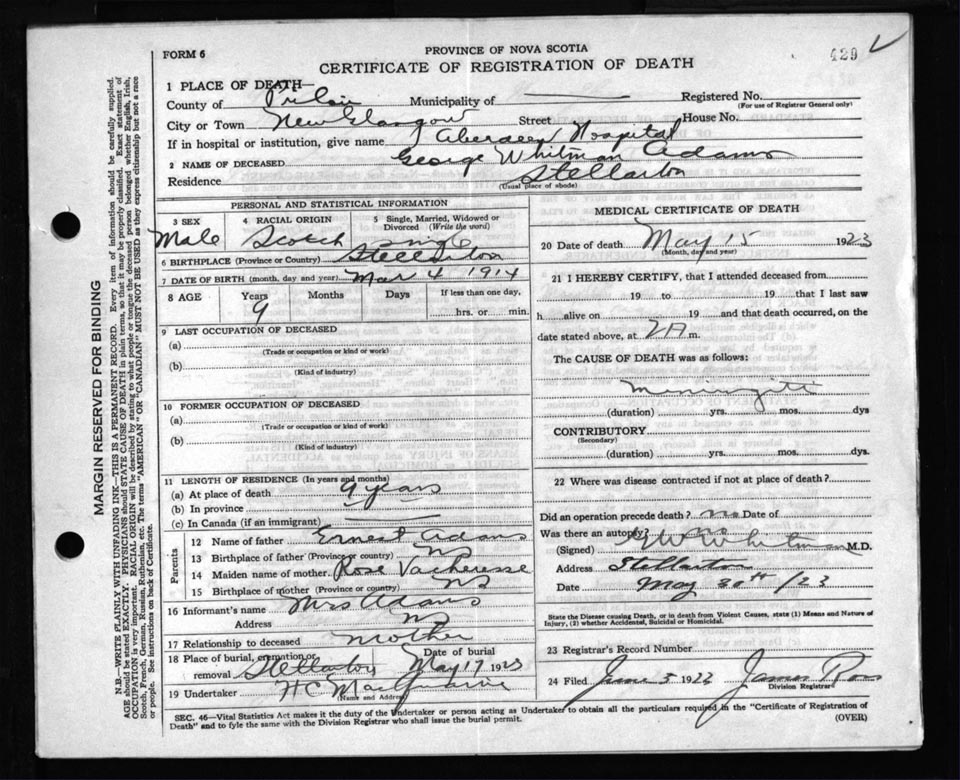 429
FORM 6
PROVINCE OF NOVA SCOTIA
CERTIFICATE OF REGISTRATION OF DEATH
1 PLACE OF DEATH—
County of Pictou Municipality of Registered No.
(For use of Registrar General only)
City or Town New Glasgow Street: House No.
If in hospital or institution, give name Aberdeen Hospital
2 NAME OF DECEASED George Whitman Adams
Residence Stellarton
(Usual place of abode)
PERSONAL AND STATISTICAL INFORMATION
3 SEX 4 RACIAL ORIGIN 5 Single, Married, Widowed or Divorced (Write the word)
Male Scotch Single
6 BIRTHPLACE (Province or Country) Stellarton
7 DATE OF BIRTH (month, day and year) Mar 4 1914
8 AGE Years Months Days If less than one day,
9 hrs. or min.
9 LAST OCCUPATION OF DECEASED
(a)
(Trade or occupation or kind or work)
(b)
(Kind of industry)
10 FORMER OCCUPATION OF DECEASED
(a)
(Trade or occupation or kind or work)
(b)
(Kind of industry)
11 LENGTH OF RESIDENCE (In years and months)
(a) At place of death 9 years
(b) In province "
(c) In Canada (if an immigrant)
Parents
12 Name of father Ernest Adams
13 Birthplace of father (Province or country) NS
14 Maiden name of mother Rose Vacheresse
15 Birthplace of mother (Province or country) NS
16 Informant's name Mrs Adams
Address NS
17 Relationship to deceased Mother
18 Place of burial, cremation or removal Stellarton Date of burial May 17 1923
19 Undertaker H C
(Name and Address)
MEDICAL CERTIFICATE OF DEATH
20 Date of death May 15 1923
(Month, day and year)
21 I HEREBY CERTIFY, that I attended deceased from
19 to 19 that I last saw
h alive on 19 and that death occurred, on the
date stated above, at 2 A m.
The CAUSE OF DEATH was as follows:
(duration) yrs. mos. dys
CONTRIBUTORY
(Secondary)
(duration) yrs. mos. dys.
22 Where was disease contracted if not at place of death?
Did an operation precede death? no Date of
Was there an autopsy? no
(Signed) Whitman M.D.
Address Stellarton
Date May 30th /23
State the Disease causing Death, or in death from Violent Causes, state (1) Means and Nature of
Injury, (2) whether Accidental, Suicidal or Homicidal.
23 Registrar's Record Number
24 Filed June 5 1923 James Ross
Division Registrar
SEC. 46—Vital Statistics Act makes it the duty of the Undertaker or person acting as Undertaker to obtain all the particulars required in the "Certificate of Registration of
Death" and to fyle the same with the Division Registrar who shall issue the burial permit.
(OVER)
MARGIN RESERVED FOR BINDING
N.B.—WRITE PLAINLY WITH UNFADING INK—THIS IS A PERMANENT RECORD. Every item of information should be carefully supplied.
AGE should be stated EXACTLY. PHYSICIANS should STATE CAUSE OF DEATH in plain terms, so that it may be properly classified. Exact statement of
OCCUPATION is very important. RACIAL ORIGIN will be described by stating to what people or tongue the deceased person belonged whether English, Irish,
Scotch, French, German, Russian, Ruthenian, etc. The terms "AMERICAN" OR "CANADIAN" MUST NOT BE USED as they express citizenship but not a race
or people. See instructions on back of Certificate.